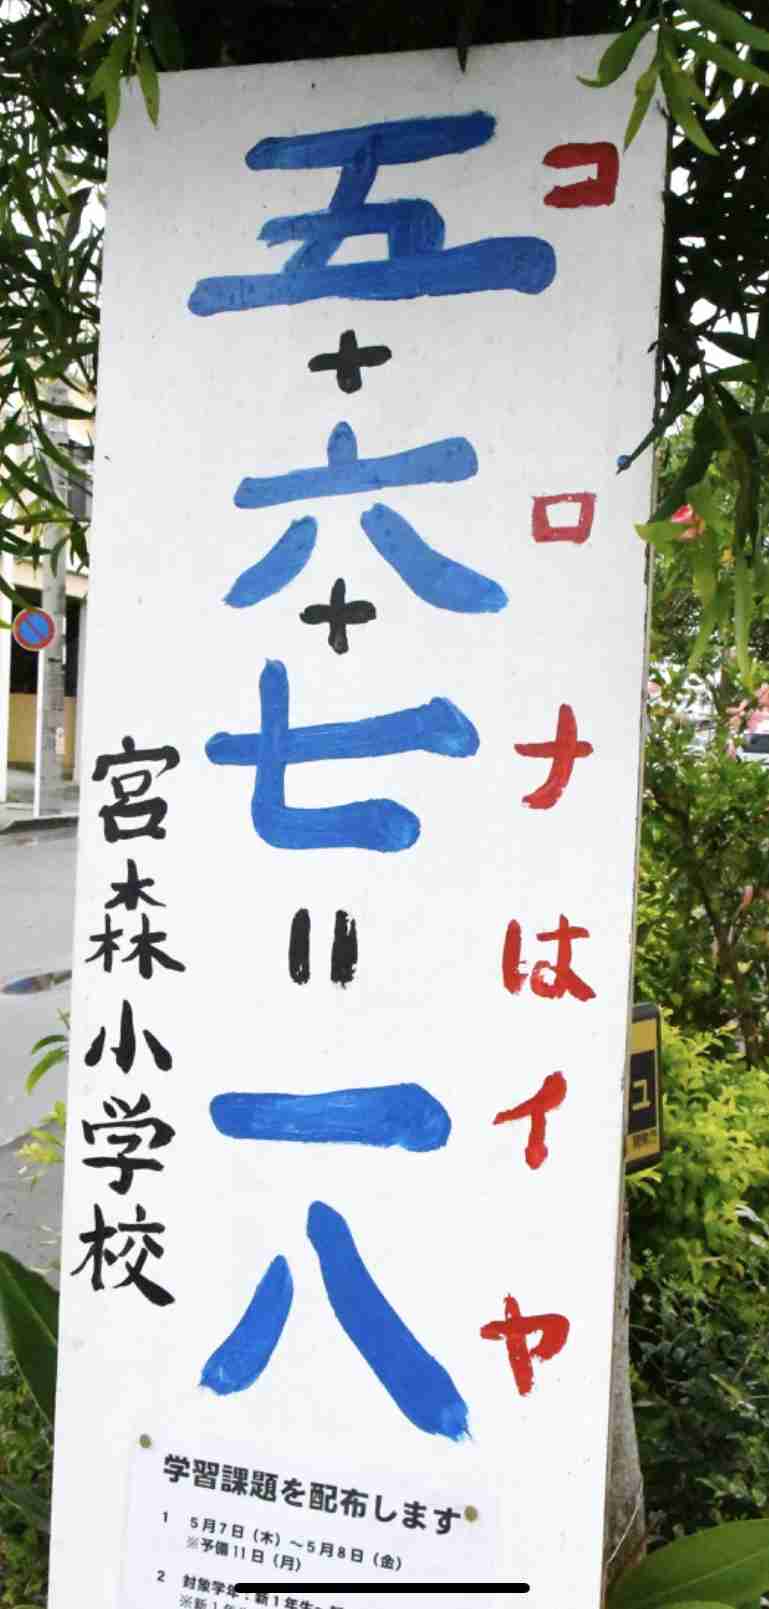 コロナはイヤ
五+六+七=一八
宮森小学校
学習課題を配布します
1 5月7日（木）～5月8日（金）
※予備11日（月）
2 対象学年：新1年生～
※新1年
ユ